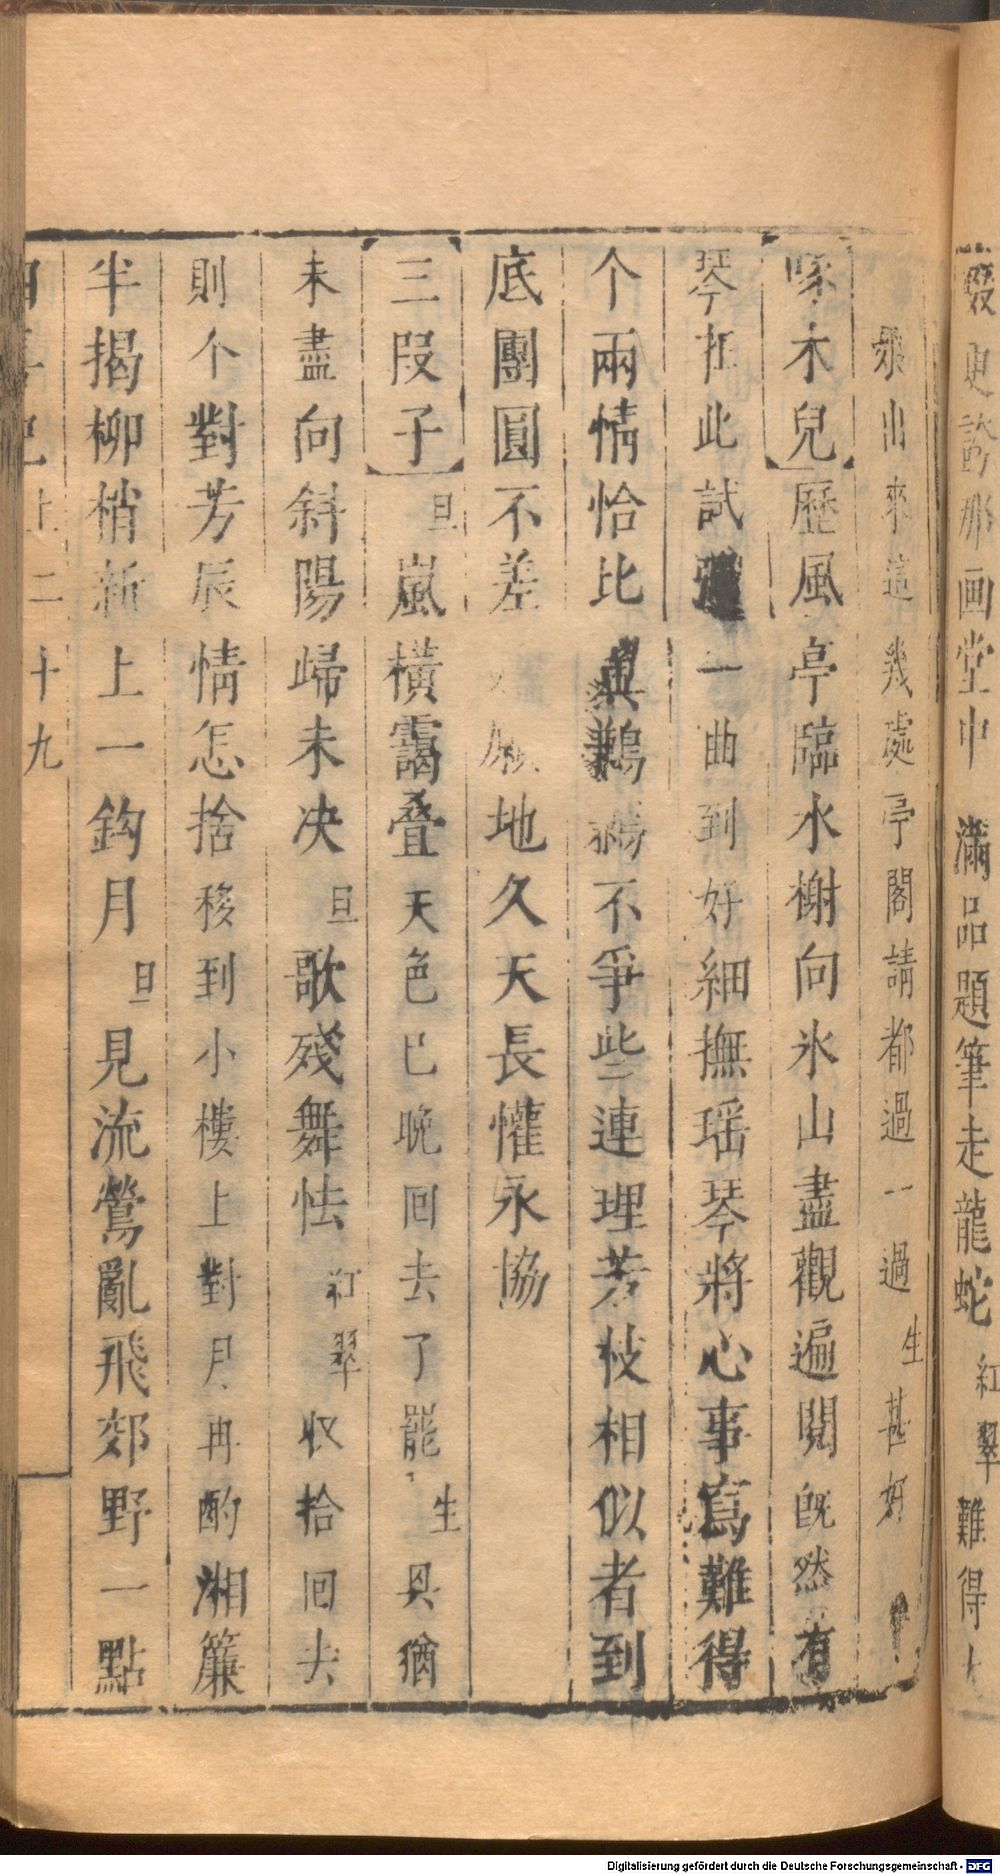 更 那画堂中 滿品題筆走龍蛇 紅翠 難得
出來這幾處亭閣請都過一過 生 甚好
啄木兒 歷風亭臨水榭向氷山盡觀遍閱既然有
琴在此試彈一曲到好細撫瑶琴將心事寫難得
个兩情恰比真鶼鶼不爭些連理芳枝相似者到
底團圓不差 願地久天長懽永協
三段子 旦 嵐橫靄叠天色已晚回去了罷 生 具猶
未盡向斜陽歸未决 旦 歌殘舞怯 紅翠 收拾回去
則个對芳辰情怎捨移到小樓上對月再酌湘簾
半揭柳梢新上一鈎月 旦 見流鶯亂飛郊野一點
四 二十九
Digitalisierung gefördert durch die Deutsche Forschungsgemeinschaft - DFG